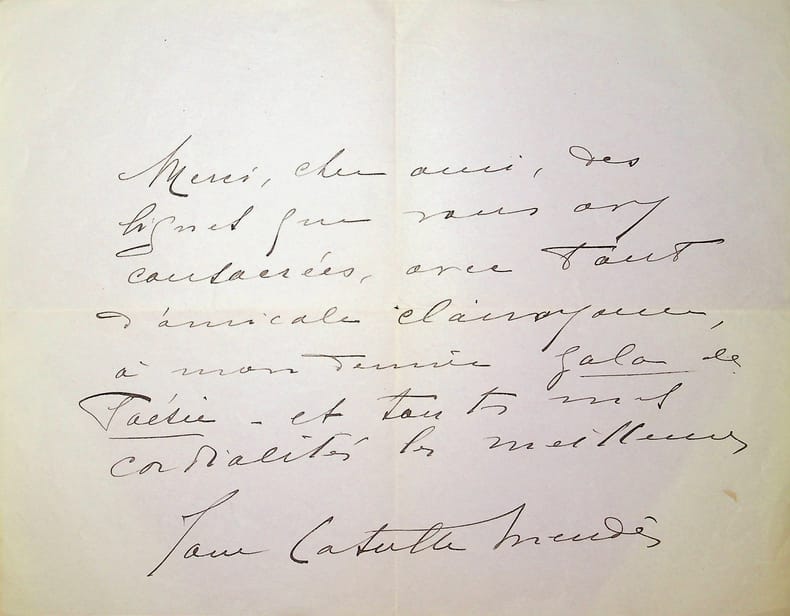 Merci, cher ami, des
lignes que vous avez
consacrées, avec tant
d'amicale clairvoyance,
à mon dernier Gala de
Poésie - et toutes mes
cordialités les meilleures
Jane Catulle Mendès